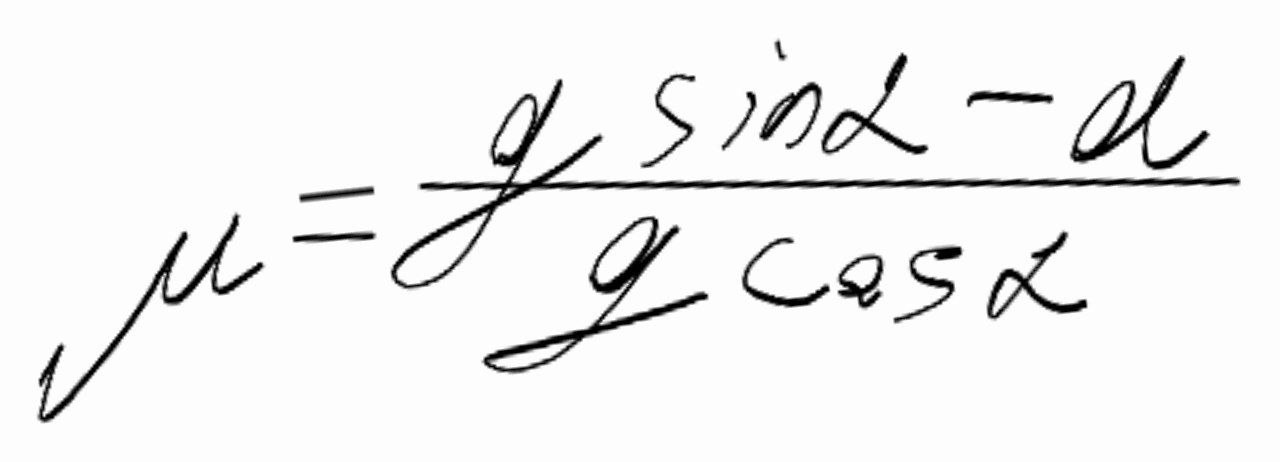 μ = (g sinα - a) / (g cosα)